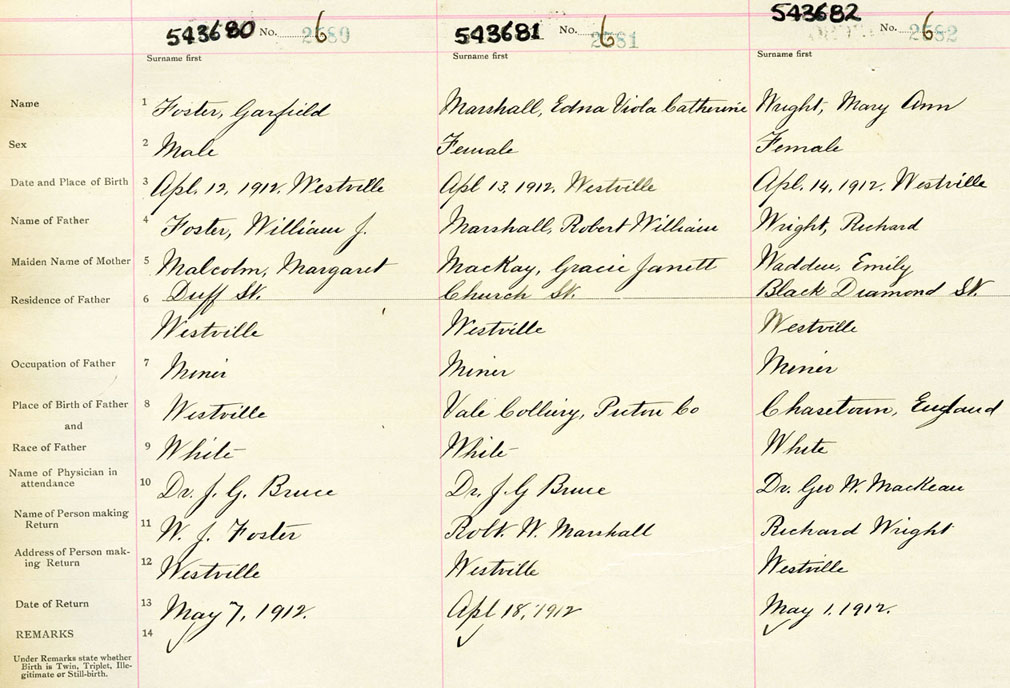 543680 No. 6 2580
543681 No. 6 2581
543682 No. 6 2582
Surname first Surname first Surname first
Name 1 Foster, Garfield Marshall, Edna Viola Catherine Wright, Mary Ann
Sex 2 Male Female Female
Date and Place of Birth 3 Apl. 12, 1912. Westville Apl 13, 1912. Westville Apl. 14, 1912. Westville
Name of Father 4 Foster, William J. Marshall, Robert William Wright, Richard
Maiden Name of Mother 5 Malcolm, Margaret MacKay, Gracie Janett Wadden, Emily
Residence of Father 6 Duff St. Church St. Black Diamond St.
Westville Westville Westville
Occupation of Father 7 Miner Miner Miner
Place of Birth of Father 8 Westville Vale Colliery, Pictou Co Chasetown, England
and
Race of Father 9 White White White
Name of Physician in
attendance 10 Dr. J. G. Bruce Dr. J. G Bruce Dr. Geo W. MacKeau
Name of Person making
Return 11 W. J. Foster Robt. W. Marshall Richard Wright
Address of Person mak-
ing Return 12 Westville Westville Westville
Date of Return 13 May 7, 1912. Apl 18, 1912 May 1. 1912.
REMARKS 14
Under Remarks state whether
Birth is Twin, Triplet, Ille-
gitimate or Still-birth.